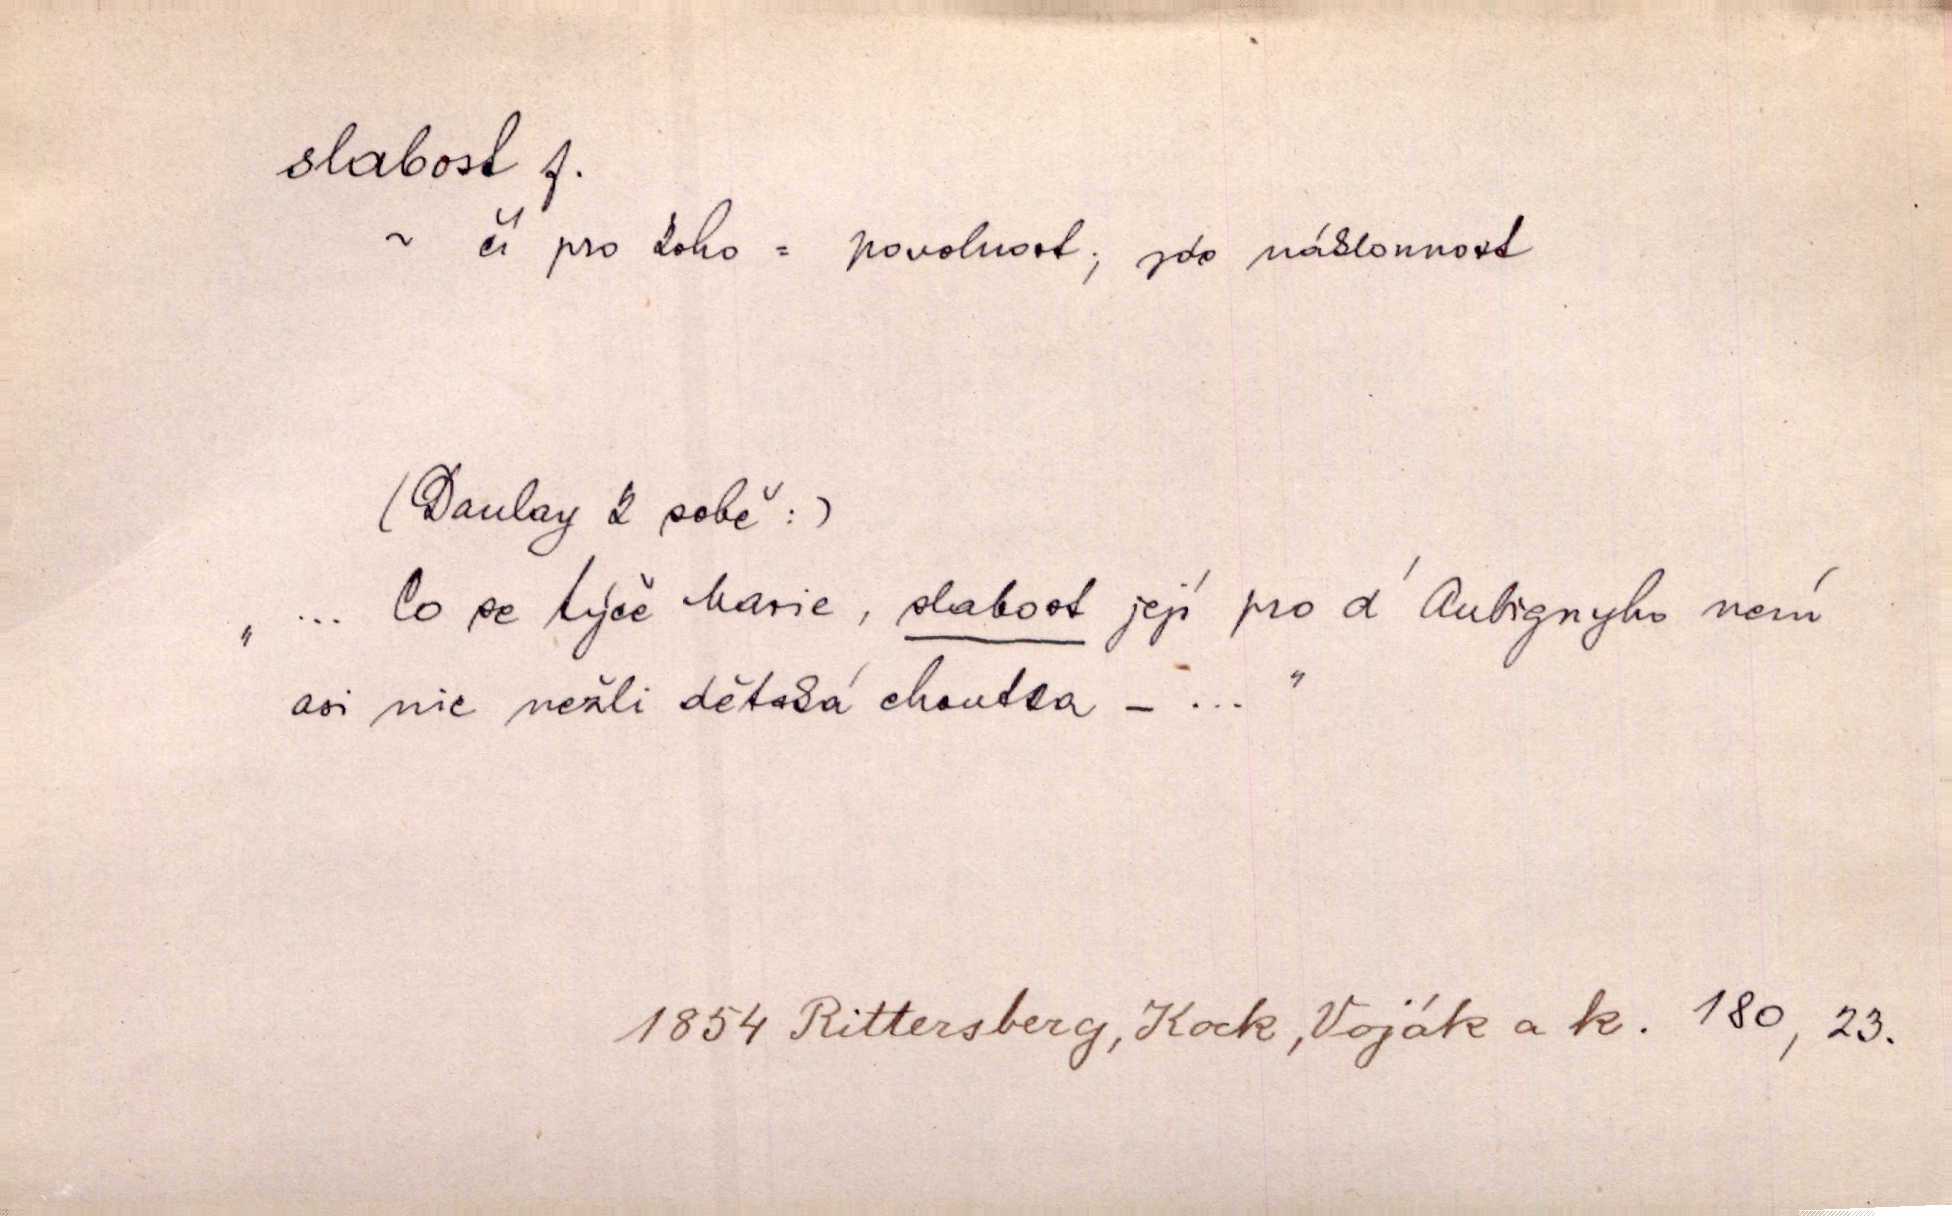 slabost f.
~ čí pro koho = povolnost; zde náklonnost
(Daulay k sobě:)
„ ... Co se týče Marie, slabost její pro d' Aubignyho není
asi nic nežli dětská choutka – ... "
1854 Rittersberg, Kock, Voják a k. 180, 23.